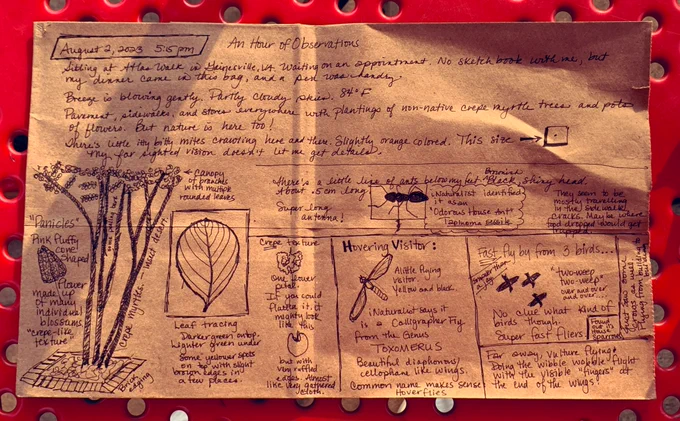 August 2, 2023 5:15pm
An Hour of Observations
Sitting at Atlas Walk in Gainesville, VA. Waiting on an appointment. No sketchbook with me, but
my dinner came in this bag, and a pen was handy.
Breeze is blowing gently. Partly cloudy skies. 84°F
Pavement, sidewalks, and stores everywhere with plantings of non-native crepe myrtle trees and pots
of flowers. But nature is here too!
There's little itty bitty mites crawling here and there. Slightly orange colored. This size
my far sighted vision doesn't let me get details.
canopy
of branches
with multiple
rounded leaves
"Panicles"
Pink fluffy
cone
shaped
Flower
made up
of many
individual
blossoms.
"crepe-like
texture"
crepe myrtles.
Leaf tracing
Darker green on top.
Lighter green under
Some yellower spots
on top with slight
brown edges in
a few places.
There's a little line of ants below my feet. Black, shiny head.
Brownish
About .5cm long
Super long
antenna!
iNaturalist identified
it as an
"Odorous House Ant"
Tapinoma sessile
They seem to be
mostly travelling
in the sidewalk
cracks. Maybe where
food dropped would get
trapped?
Crepe texture
one flower
petal
If you could
flatten it, it
might look
like this
but with
very ruffled
edges. Almost
like very gathered
cloth.
Hovering Visitor:
A little flying
visitor.
Yellow and black.
iNaturalist says it
is a Calligrapher Fly
From the Genus
TOXOMERUS
Beautiful diaphonous/
cellophane like wings.
Common name makes sense
Hoverflies
Fast fly by from 3 birds...
"Two-weep
two-weep"
over and over
and over...
No clue what kind of
birds though.
Super fast fliers
Found
out it's
"House"
Sparrows
Far away, vulture flying
doing the wibble wobble flight
with the visible "fingers" at
the end of the wings!